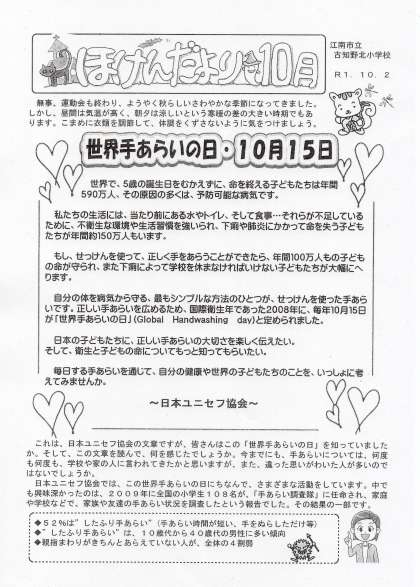 ほけんだより 10月
江南市立
古知野北小学校
R1.10.2
無事、運動会も終わり、ようやく秋らしいさわやかな季節になってきました。
しかし、昼間は気温が高く、朝夕は涼しいという寒暖の差の大きい時期でもあ
ります。こまめに衣類を調節して、体調をくずさないように気をつけましょう。
世界手あらいの日・10月15日
世界で、5歳の誕生日をむかえずに、命を終える子どもたちは年間
590万人、その原因の多くは、予防可能な病気です。
私たちの生活には、当たり前にある水やトイレ、そして食事…それらが不足している
ために、不衛生な環境や生活習慣を強いられ、下痢や肺炎にかかって命を失う子ども
たちが年間約150万人もいます。
もし、せっけんを使って、正しく手をあらうことができたら、年間100万人もの子ども
の命が守られ、また下痢によって学校を休まなければいけない子どもたちが大幅にへ
ります。
自分の体を病気から守る、最もシンプルな方法のひとつが、せっけんを使った手あら
いです。正しい手あらいを広めるため、国際衛生年であった2008年に、毎年10月15日
が「世界手あらいの日」(Global Handwashing day)と定められました。
日本の子どもたちに、正しい手あらいの大切さを楽しく伝えたい。
そして、衛生と子どもの命についてもっと知ってもらいたい。
毎日する手あらいを通じて、自分の健康や世界の子どもたちのことを、いっしょに考
えてみませんか。
～日本ユニセフ協会～
これは、日本ユニセフ協会の文章ですが、皆さんはこの「世界手あらいの日」を知っていました
か。そして、この文章を読んで、何を感じたでしょうか。今までにも、手あらいについては、何度
も何度も、学校や家の人に言われてきたかと思いますが、また、違った思いがわいた人が多いので
はないでしょうか。
日本ユニセフ協会では、この世界手あらいの日にちなんで、さまざまな活動をしています。中で
も興味深かったのは、2009年に全国の小学生108名が、「手あらい調査隊」に任命され、家庭
や学校などで、家族や友達の手あらい状況を調査したという報告でした。その結果の一部です。
◆52%は"したふり手あらい"(手あらい時間が短い、手をぬらしただけ等)
◆"したふり手あらい"は、10歳代から40歳代の男性に多い傾向
◆親指まわりがきちんとあらえていない人が、全体の4割弱